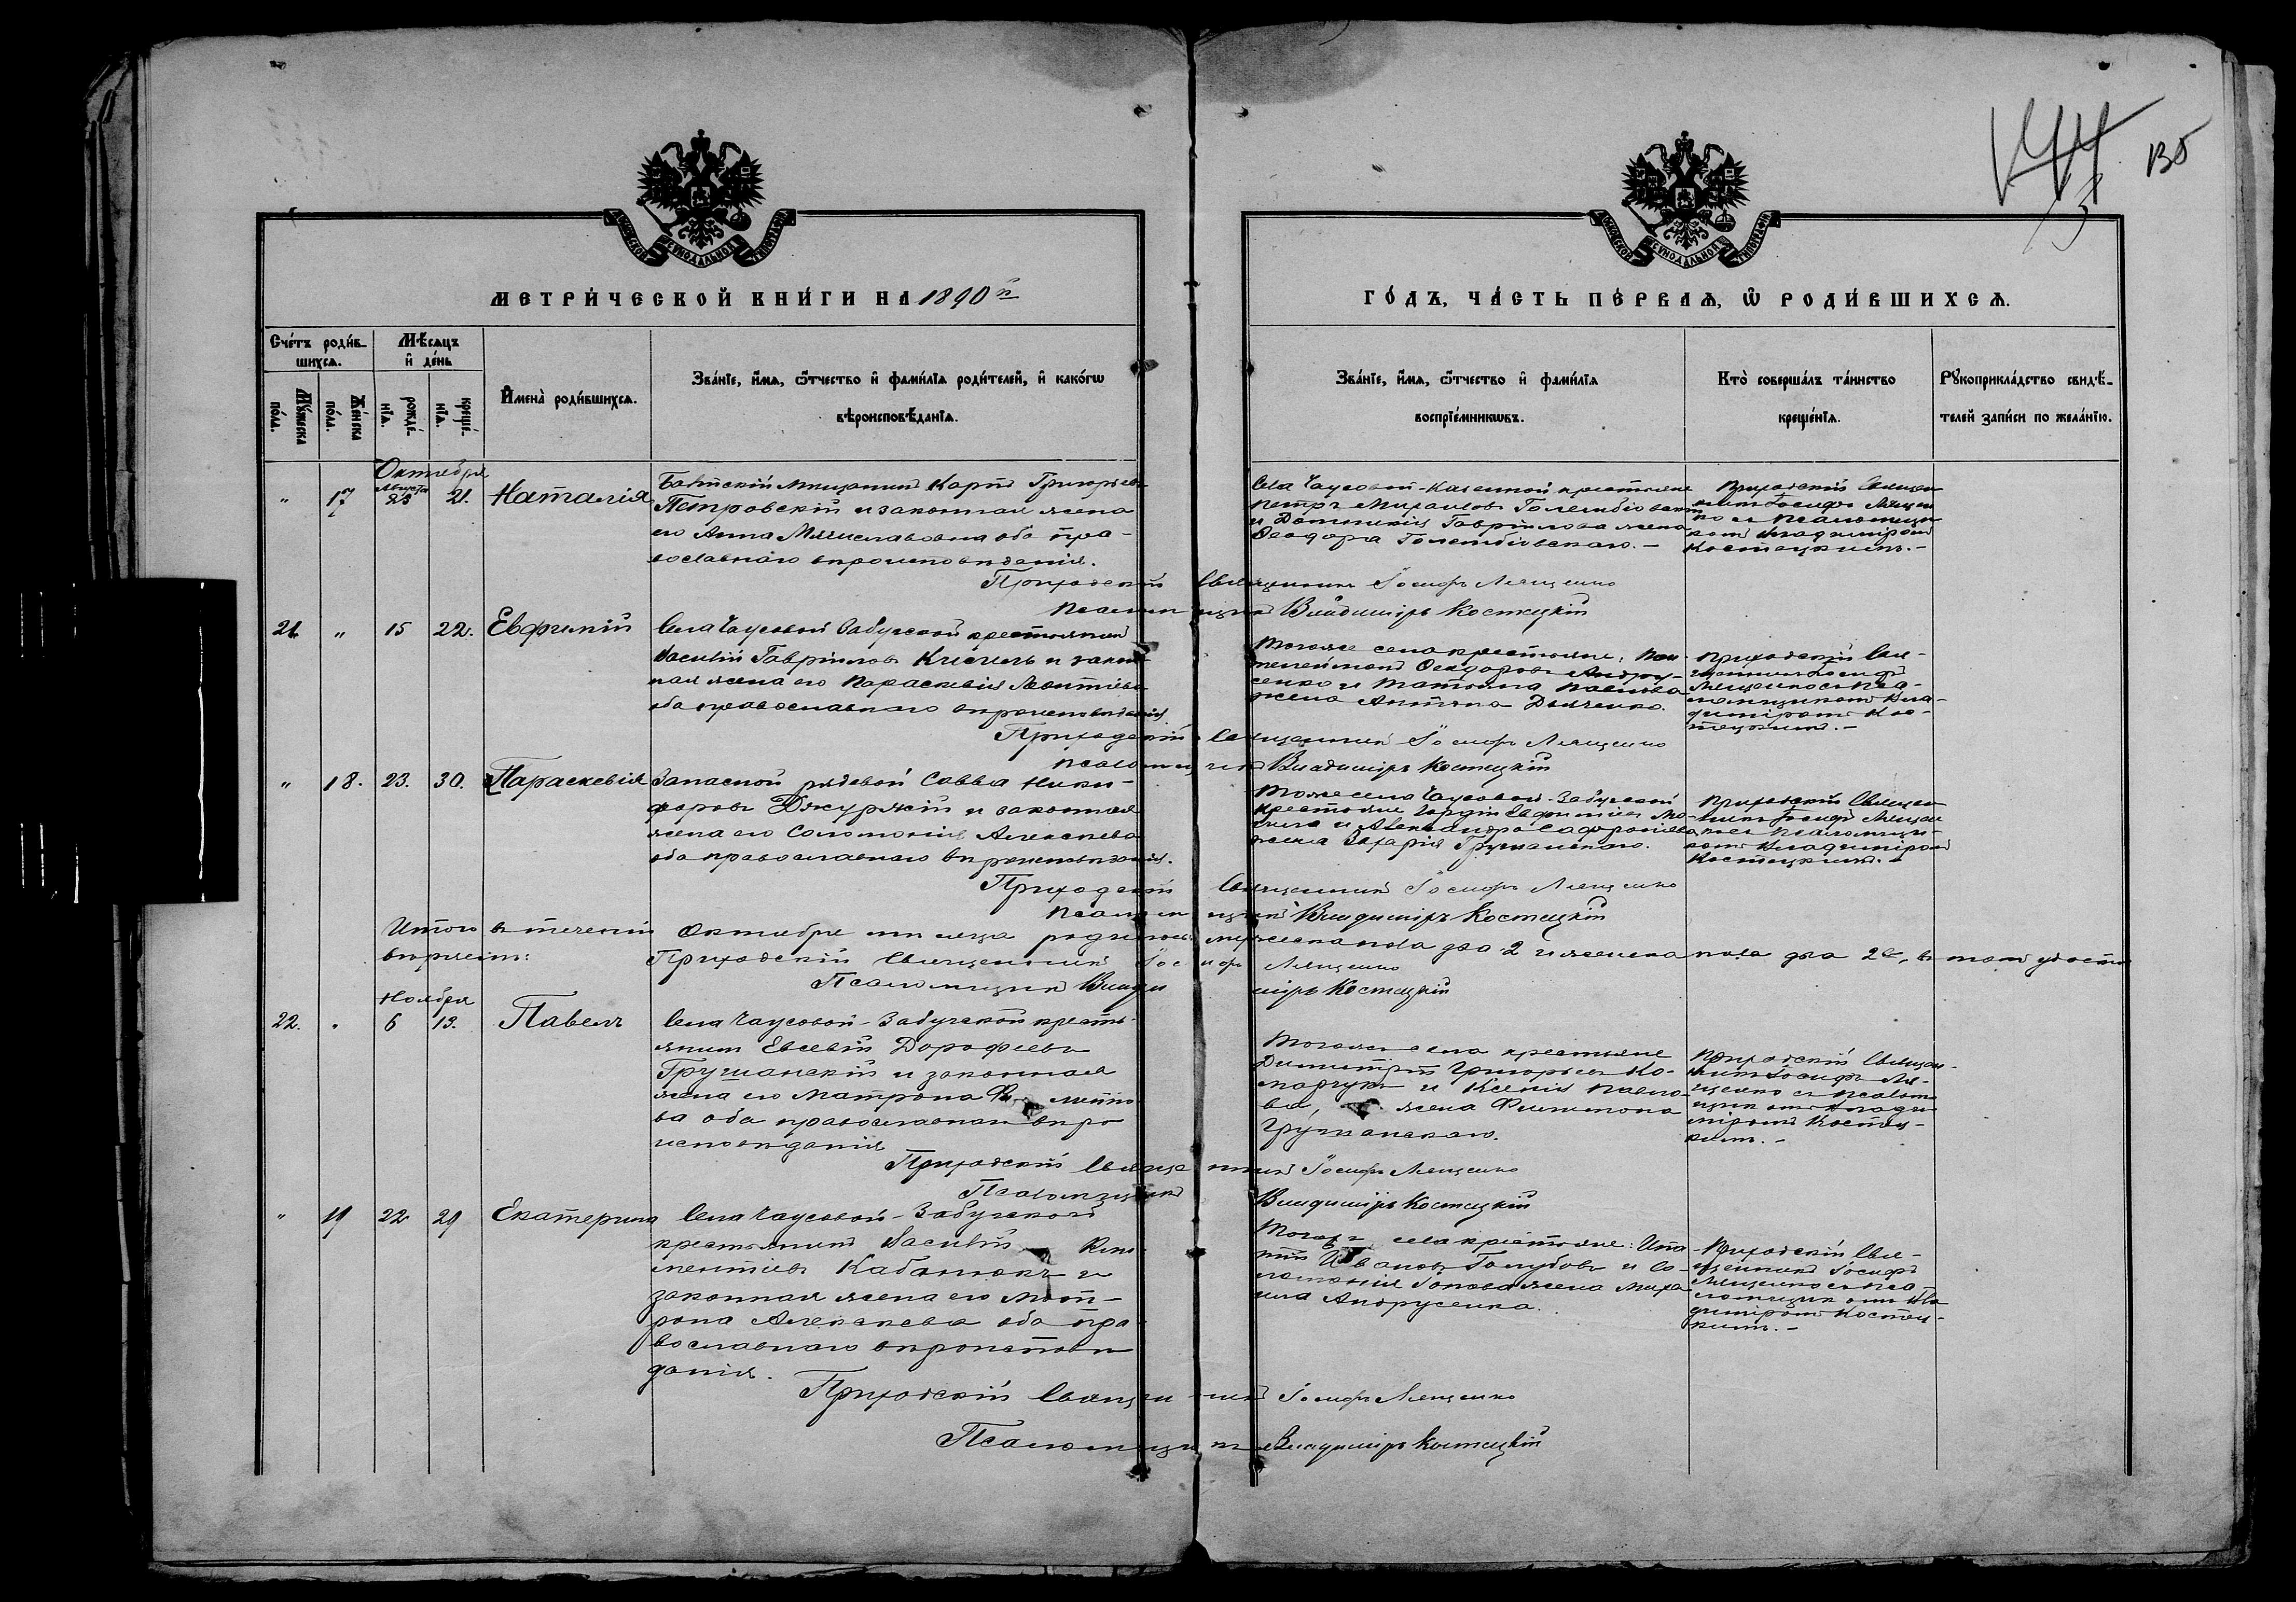 135
МЕТРИ́ЧЕСКОЙ КНИ́ГИ НА 1890й
ГО́ДЪ, ЧА́СТЬ ПЕ́РВАЯ, Ѡ РОДИ́ВШИХСЯ.
Сче́тъ роди́в-
шихся.
Мѣ́сяцъ
и҆ де́нь
Му́жеска
по́ла.
Же́нска
по́ла.
рожде́-
нїя.
креще́-
нїя.
И҆мена̀ роди́вшихся.
Зва́нїе, и҆́мя, ѻ҆́тчество и҆ фами́лїя роди́телей, и҆ како́гѡ
вѣроисповѣ́данїя.
Зва́нїе, и҆́мя, ѻ҆́тчество и҆ фами́лїя
воспрїе́мникѡвъ.
Кто̀ соверша́лъ та́инство
креще́нїя.
Рꙋкоприкла́дство свидѣ́-
телей за́писи по жела́нїю.
Октября
Августа
" 17 23 21. Наталія
Балтскій мѣщанинъ Карпъ Григорьевъ
Петровскій и законная жена
его Анна Мячиславовна оба пра-
вославнаго вѣроисповѣданія.
Села Чаусовой-Казенной крестьяне
Петръ Михаиловъ Голембіовскій
и Домникія Гавріилова жена
Ѳеодора Голембіовскаго. -
Приходскій Священ
никъ Іосифъ Лящен
ко и Псаломщи
комъ Владиміромъ
Костецкимъ. -
Приходскій Священникъ Іосифъ Лященко
Псаломщикъ Владиміръ Костецкій
21 " 15 22. Евфимій
Села Чаусовой Забугской крестьянинъ
Василій Гавріиловъ Кисиль и закон-
ная жена его Параскевія Леонтіева
оба православнаго вѣроисповѣданія.
Тогоже села крестьяне: Пан-
телеймонъ Ѳеодоровъ Андру-
сенко и Татьяна Павлова
жена Антона Дьяченко.
Приходскій Свя-
щенникъ Іосифъ
Лященко съ Пса-
ломщикомъ Вла-
диміромъ Кос-
тецкимъ. -
Приходскій Священникъ Іосифъ Лященко
Псаломщикъ Владиміръ Костецкій
" 18. 23. 30. Параскевія
Запасной рядовой Савва Ники-
форовъ Джуржій и законная
жена его Соломонія Алексѣева
оба православнаго вѣроисповѣданія.
Тоже села Чаусовой-Забугской
крестьяне Гордій Евфиміевъ
и Александра Сафроніева
жена Захарія Грушанскаго.
Приходскій Священ
никъ Іосифъ Лящен
ко съ Псаломщи-
комъ Владиміромъ
Костецкимъ. -
Приходскій Священникъ Іосифъ Лященко
Псаломщикъ Владиміръ Костецкій
Итого въ теченіи Октября мѣсяца родилось мужеска пола два 2 и женска пола два 2, въ томъ удосто
вѣряемъ: Приходскій Священникъ Іосифъ Лященко
Псаломщикъ Владиміръ Костецкій
Ноября
22. " 6 13. Павелъ
Села Чаусовой-Забугской кресть-
янинъ Евсевій Дорофеевъ
Грушанскій и законная
жена его Матрона
ва оба православнаго вѣро
исповѣданія
Тогоже села крестьяне
Димитрій Григорьевъ Ко-
марчукъ и Ксенія Павло-
ва, жена Филимона
Грушанскаго.
Приходскій Священ-
никъ Іосифъ Ля-
щенко съ Псалом
щикомъ Влади
міромъ Костец-
кимъ. -
Приходскій Священникъ Іосифъ Лященко
Псаломщикъ Владиміръ Костецкій
" 19 22 29 Екатерина
Села Чаусовой-Забугской
крестьянинъ Василій Кли-
ментіевъ Кабанюкъ и
законная жена его Мат-
рона Алексѣева оба пра
вославнаго вѣроисповѣ
данія.
Тогоже села крестьяне: Ипа-
тій Ивановъ Голубовъ и Со-
ломонія Іовова жена Миха
ила Андрусенка.
Приходскій Свя-
щенникъ Іосифъ
Лященко съ Пса-
ломщикомъ Вла
диміромъ Костец-
кимъ. -
Приходскій Священникъ Іосифъ Лященко
Псаломщикъ Владиміръ Костецкій